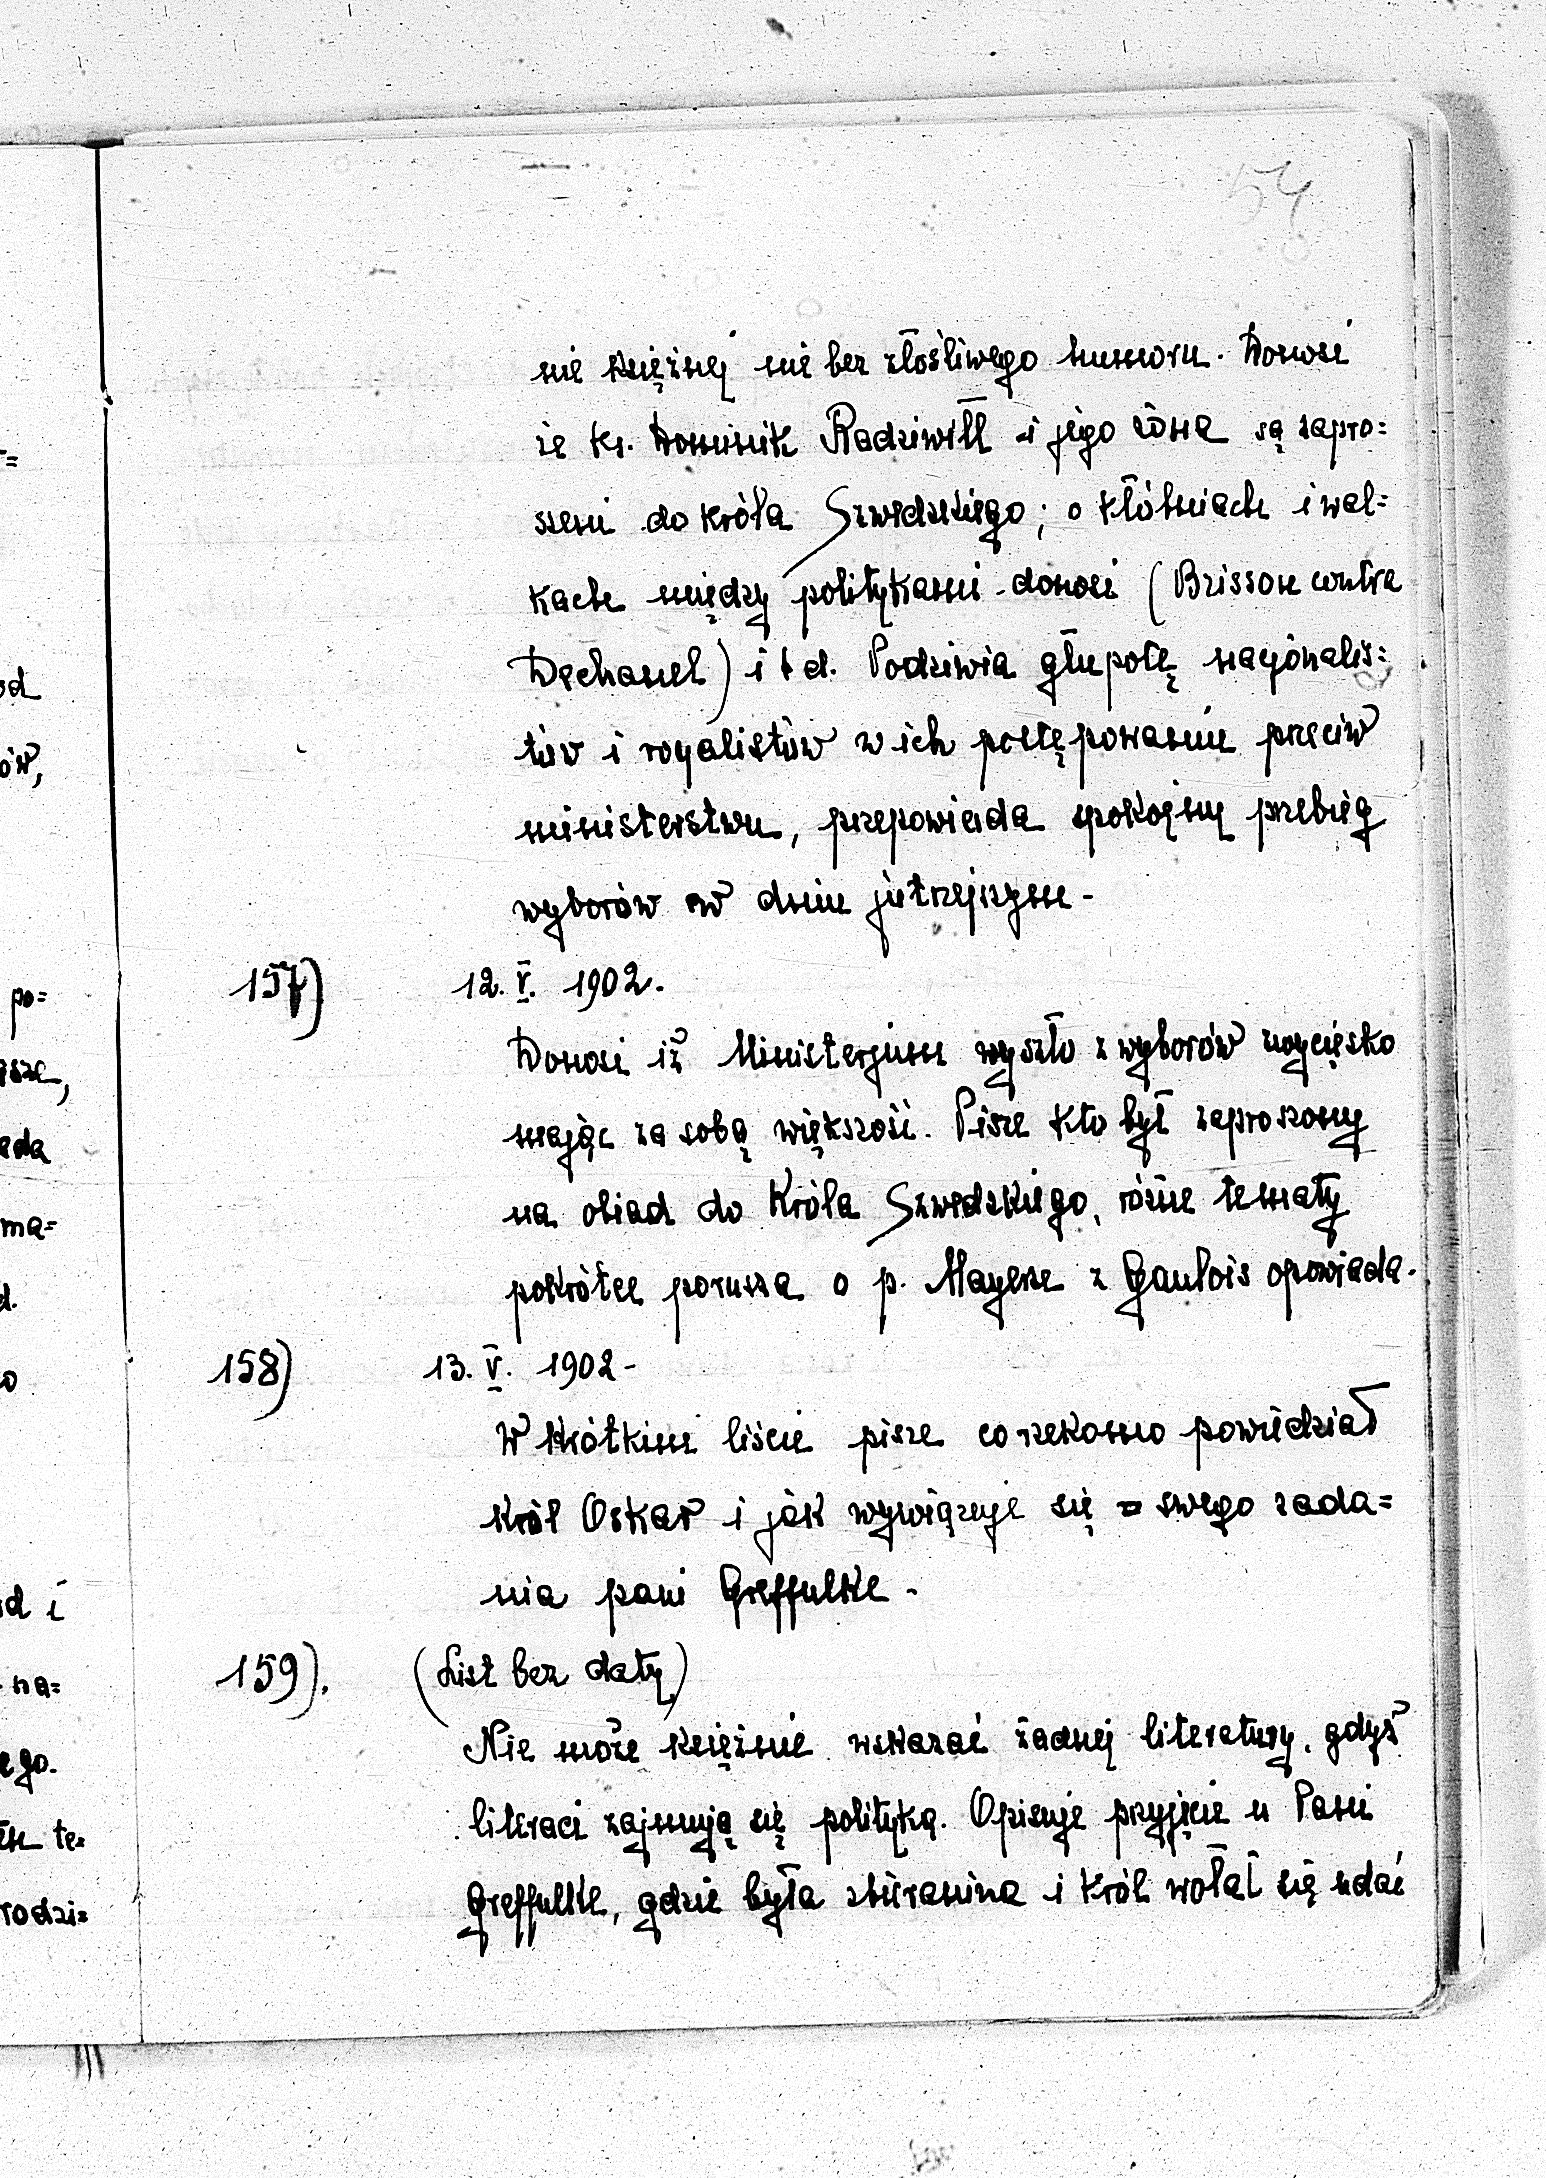 54
nie księżnej nie bez złośliwego humoru. Donosi
że ks. Dominik Radziwiłł i jego żona są zapro=
szeni do króla Szwedzkiego; o kłótniach i wal=
kach między politykami donosi (Brisson contra
Dechanel) i t d. Podziwia głupotę nacjonalis=
tów i royalistów w ich postępowaniu przeciw
ministerstwu, przepowiada spokojny przebieg
wyborów w dniu jutrzejszym -
157) 12. V. 1902.
Donosi iż Ministerjum wyszło z wyborów zwycięsko
mając za sobą większość. Pisze kto był zaproszony
na obiad do Króla Szwedzkiego, różne tematy
pokrótce porusza o p. Mayerze z Gaulois opowiada.
158) 13. V. 1902 -
W krótkim liście pisze co rzekomo powiedział
król Oskar i jak wywiązuje się z swego zada=
nia pani Greffulke -
159). (List bez daty)
Nie może księżnie wskazać żadnej literatury, gdyż
literaci zajmują się polityką. Opisuje przyjęcie u Pani
Greffulke, gdzie była zbieranina i król wołał się udać
od
ów,
po=
isze,
ada
ma=
d.
o
d i
na=
ego.
te=
rodzi=